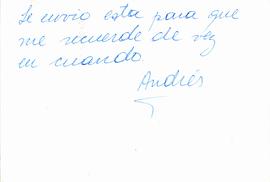 Le envío esta para que
me recuerde de vez
en cuando.
Andrés